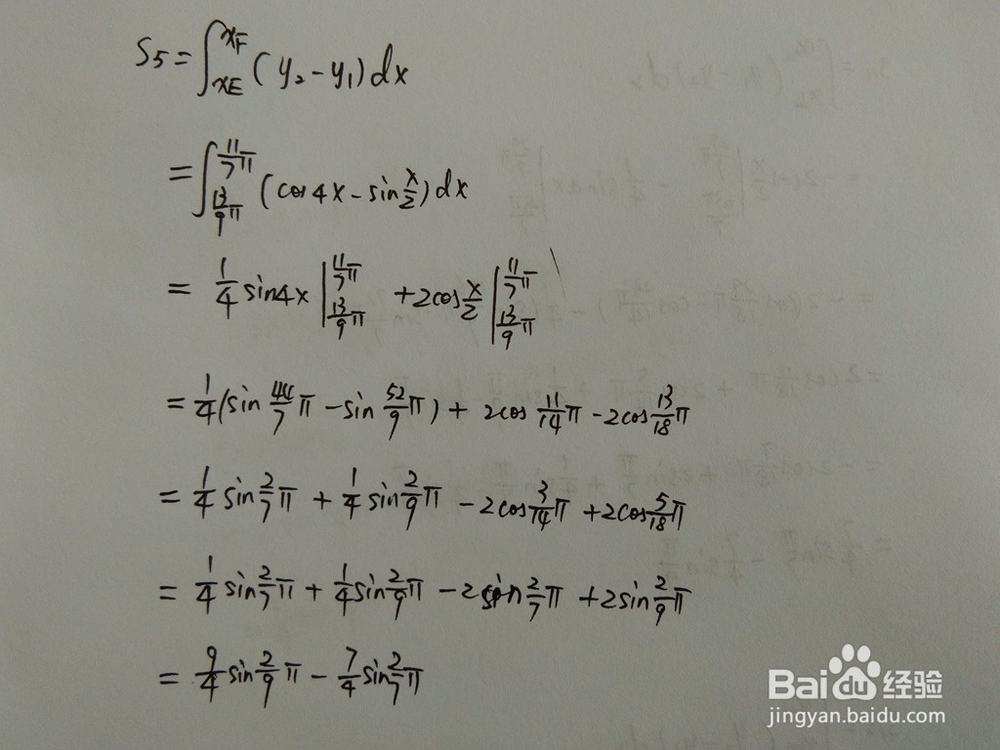 S5 = ∫_{xE}^{xF} (y₂ - y₁) dx
= ∫_{13/9 π}^{11/7 π} (cos4x - sin x/2) dx
= 1/4 sin4x |_{13/9 π}^{11/7 π} + 2cos x/2 |_{13/9 π}^{11/7 π}
= 1/4 (sin 44/7 π - sin 52/9 π) + 2cos 11/14 π - 2cos 13/18 π
= 1/4 sin 2/7 π + 1/4 sin 2/9 π - 2cos 3/14 π + 2cos 5/18 π
= 1/4 sin 2/7 π + 1/4 sin 2/9 π - 2sin 2/7 π + 2sin 2/9 π
= 9/4 sin 2/9 π - 7/4 sin 2/7 π
Baidu 经验
jingyan.baidu.com